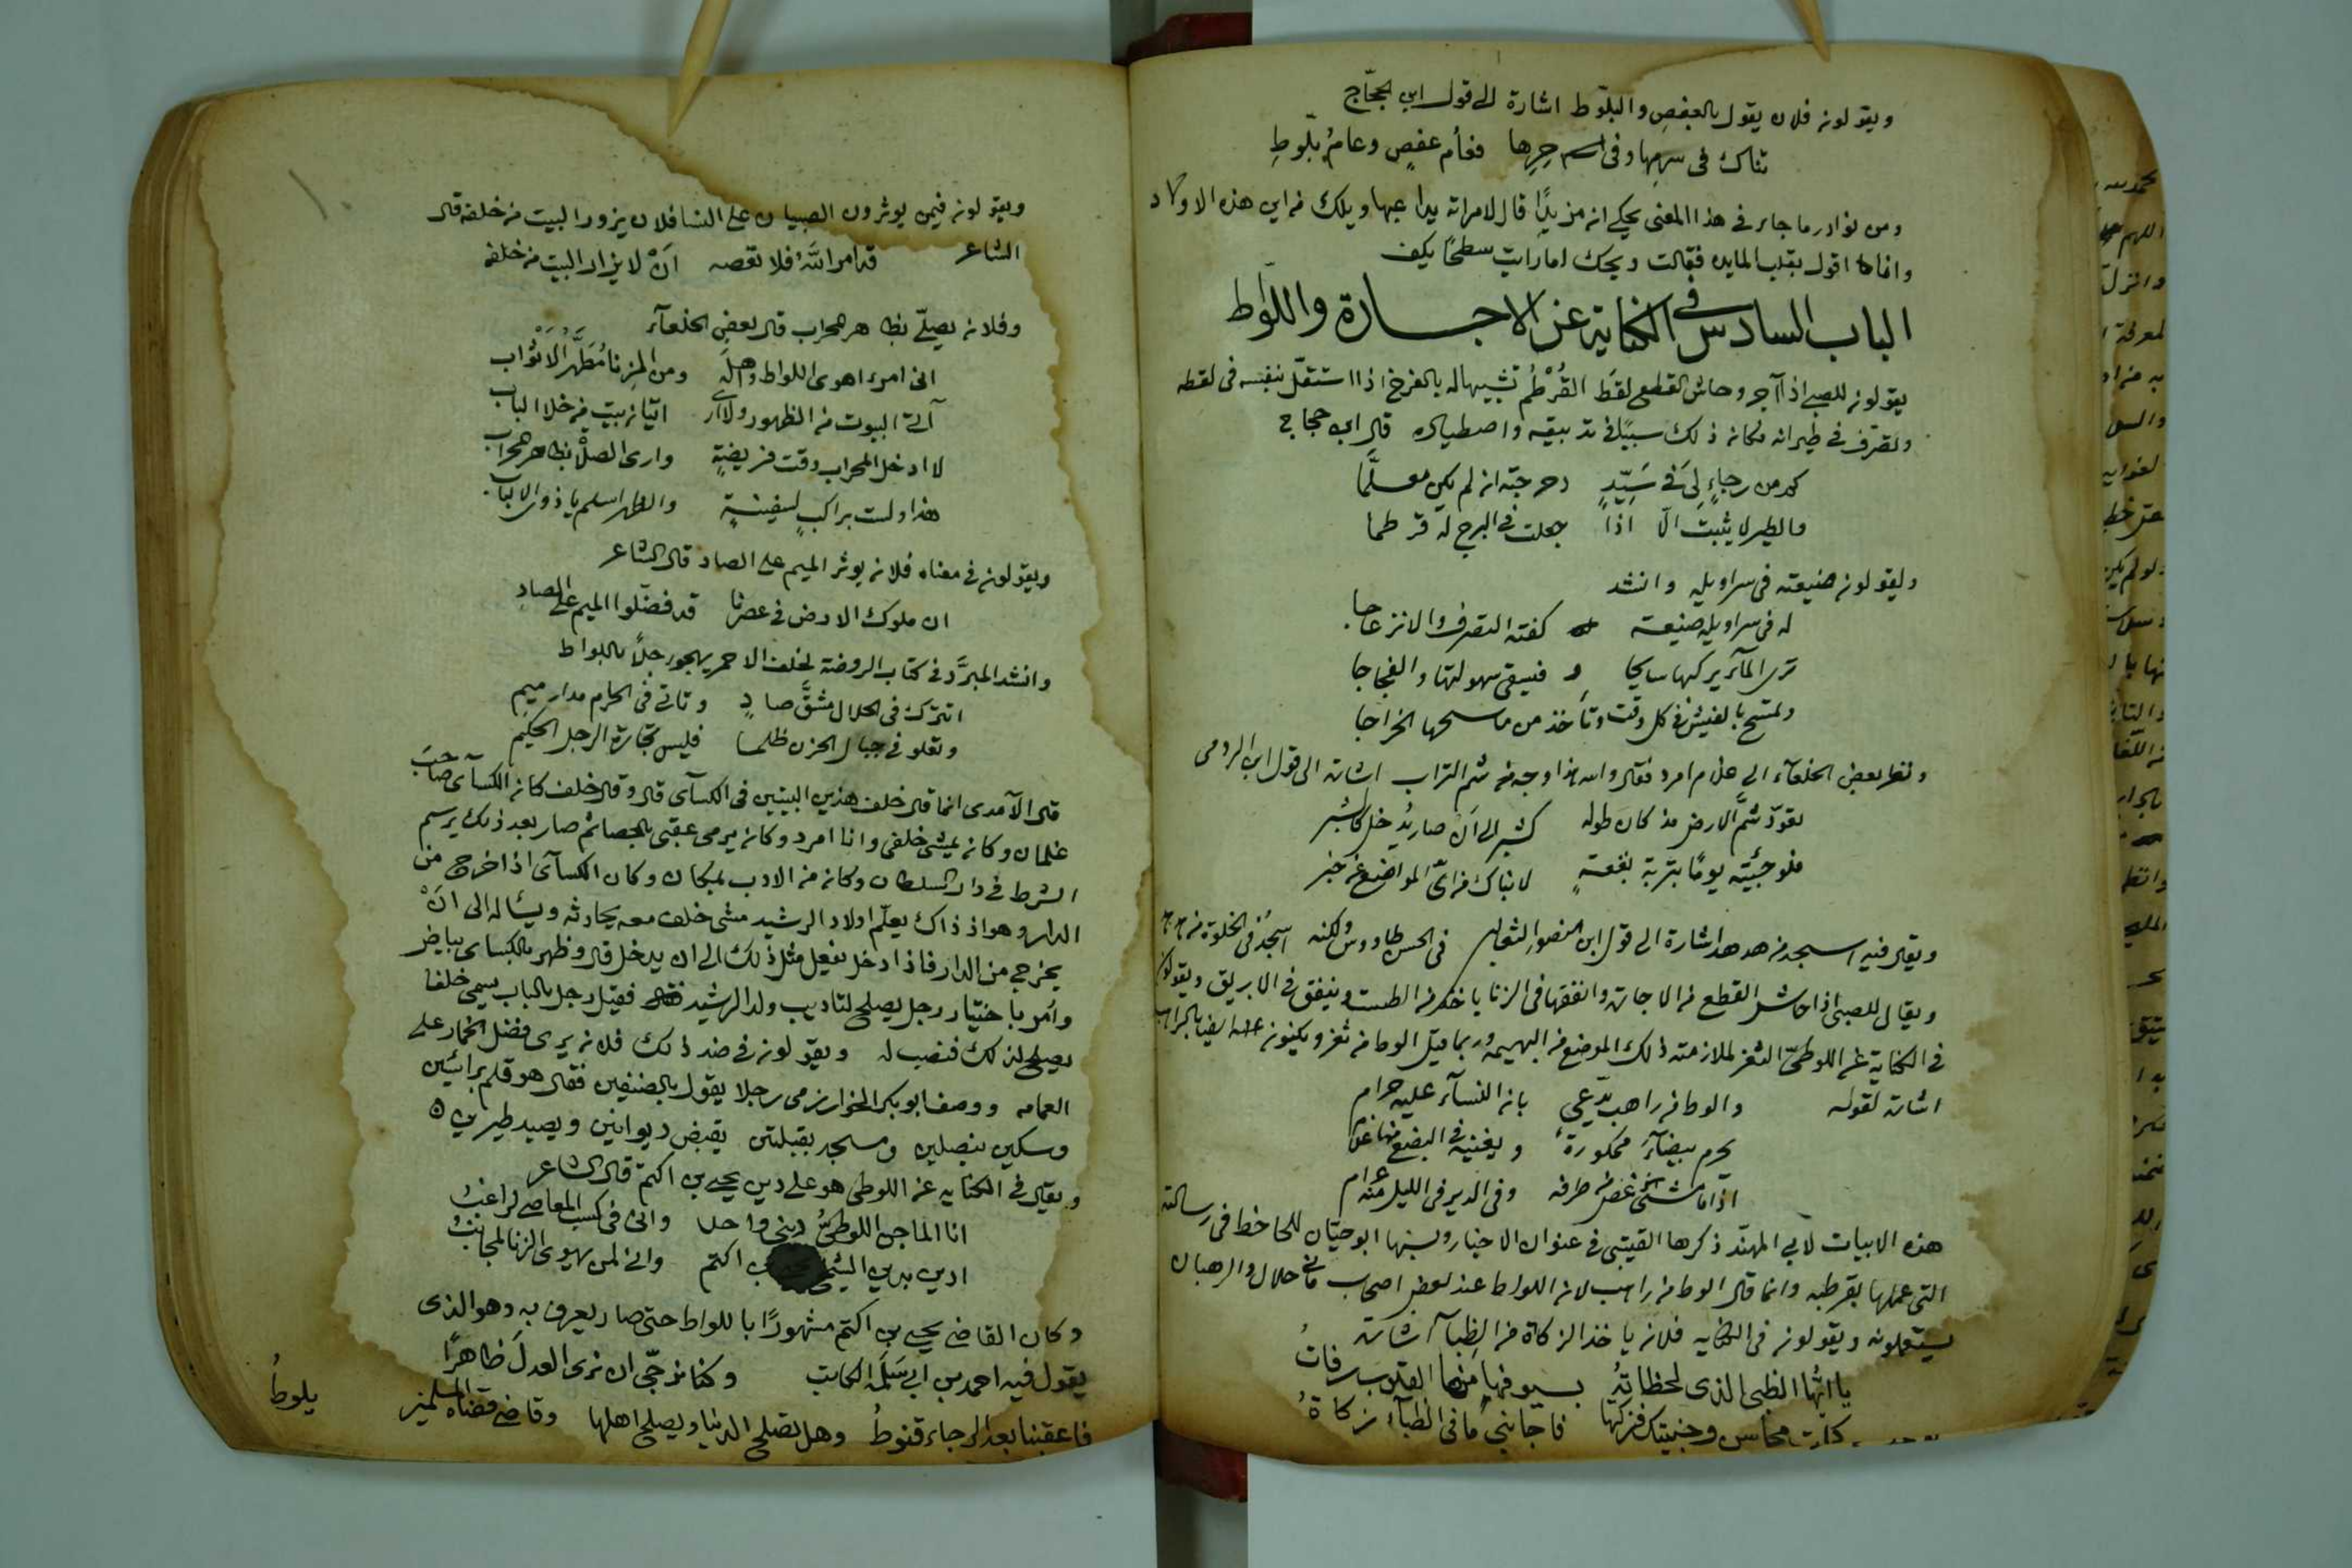 ويقولون فلان يقول بالعفص والبلوط اشارة الى قول ابن الحجاج
تناك في سرمها وفي حرها فعام عفص وعام بلوط
ومن نوادر ما جاء في هذا المعنى يحكى ان مزيدا قال لامراته يداعبها ويلك من اين هذه الاولاد
وانا اقول بقلب المايده فقالت ويحك اما رايت سطحا يكف
الباب السادس في الكناية عن الاجارة واللواط
يقولون للصبي اذا آجر وحاش القطع لقط القرطم تشبيها له بالفرخ اذا استقل بنفسه في لقطه
وتصرف في طيرانه وكان ذلك سببا في تدبيقه واصطياده قال ابن حجاج
كم من رجاء لي في سيد دحرجته ان لم يكن معلما
والطير لا يثبت الا اذا جعلت في البرج له قرطما
ويقولون ضيعته في سراويله وانشد
له في سراويله ضيعة كفته التصرف والانزعاجا
ترى المآء يركبها سايحا فيسقي سهولتها والفجاجا
وتمسح بالفيش في كل وقت وتأخذ من ماسحها الخراجا
ونظر بعض الخلعآء الى غلام امرد فقال والله هذا وجه من شم التراب اشارة الى قول ابن الرومي
تعود شم الارض مذ كان طوله كشبر الى ان صار يدخل كالشبر
فلو جئته يوما بتربة بقعة لانباك من اي المواضع عن خبر
ويقال فيه اسجد من هدهد اشارة الى قول ابي منصور الثعالبي في الحسن طاووس ولكنه اسجد في الخلوة من هدهد
ويقال للصبي اذا حاش القطع من الاجارة وانفقها في الزنا ياخذ من الطست وينفق في الابريق ويقولون
في الكناية عن اللوطي الثغر لملازمته ذلك الموضع من البهيمه وربما قيل الوط من ثغر ويكنون عنه ايضا بالراهب
اشارة لقوله والوط من راهب يدعي بان النسآء عليه حرام
يحرم بيضآء ممكورة ويغنيه في البضع عنها غلام
اذا ما مشى غض من طرفه وفي الدير في الليل منه عرام
هذه الابيات لابي المهند ذكرها القتيبي في عنوان الاخبار ونسبها ابو حيان للجاحظ في رسالته
التي عملها بقرطبه وانما قال الوط من راهب لان اللواط عند بعض اصحاب ماني حلال والرهبان
يستعملونه ويقولون في الكنايه فلان ياخذ الزكاة من الظبآء اشارة
يا ايها الظبي الذي لحظاته بسيوفها منها القلوب رفات
كملت محاسن وجنتيك فزكها فاجابني ما في الظبآء زكاة
ويقولون فيمن يوثرون الصبيان على النسا فلان يزور البيت من خلفه قال
الشاعر قد امر الله فلا تعصه ان لا يزار البيت من خلفه
وفلان يصلي بظاهر المحراب قال بعض الخلعآء
اني امرء اهوى اللواط واهله ومن الزنا مطهر الاثواب
آتي البيوت من الظهور ولا ارى اتيان بيت من خلا الباب
لا ادخل المحراب وقت فريضة وارى الصلاة بظاهر المحراب
هذا ولست براكب لسفينة والظهر اسلم يا ذوي الالباب
ويقولون في معناه فلان يوثر الميم على الصاد قال الشاعر
ان ملوك الارض في عصرنا قد فضلوا الميم على الصاد
وانشد المبرد في كتاب الروضة لخلف الاحمر يهجو رجلا باللواط
اتترك في الحلال مشق صاد وتاتي في الحرم مدار ميم
وتعلو في جبال الحزن ظلما فليس تجارة الرجل الحكيم
قال الآمدي انما قال خلف هذين البيتين في الكسآى قال وقال خلف كان الكسآى صاحب
غلمان وكان يمشي خلفي وانا امرد وكان يرمي عقبي بالحصا ثم صار بعد ذلك يرسم
الشرط في دار السلطان وكان من الادب بمكان وكان الكسآى اذا خرج من
الدار وهو اذ ذاك يعلم اولاد الرشيد مشى خلف معه يحادثه ويساله الى ان
يخرج من الدار فاذا دخل فعل مثل ذلك الى ان يدخل قال وظهر بالكساى بياض
وأمر باختيار رجل يصلح لتاديب ولد الرشيد فقيل رجل بالباب يسمى خلفا
يصلح لذلك فنصب له ويقولون في ضد ذلك فلان يرى فضل الخمار على
العمامه ووصف ابو بكر الخوارزمي رجلا يقول بالصنفين فقال هو قلم براسين
وسكين بنصلين ومسجد بقبلتين يقبض ديوانين ويصيد طيرين
ويقال في الكنايه عن اللوطي هو على دين يحيى بن اكتم قال الشاعر
انا الماجن اللوطي ديني واحد واني في كسب المعاصي لراغب
ادين بدين الشيخ يحيى بن اكتم واني لمن يهوى الزنا لمجانب
وكان القاضي يحيى بن اكتم مشهورا باللواط حتى صار يعرف به وهو الذي
يقول فيه احمد بن ابي سلمة الكاتب وكنا نرجي ان نرى العدل ظاهرا
فاعقبنا بعد الرجاء قنوط وهل تصلح الدنيا ويصلح اهلها وقاضي قضاة المسلمين يلوط